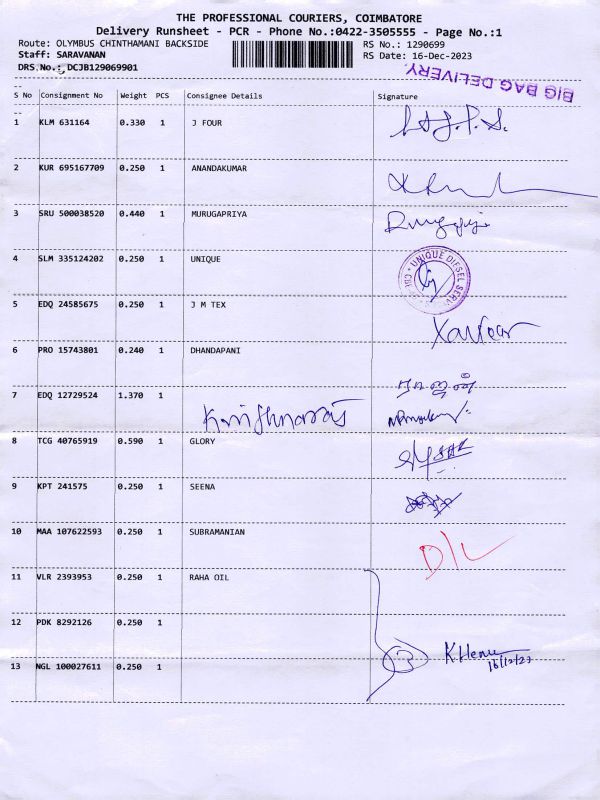 THE PROFESSIONAL COURIERS, COIMBATORE
Delivery Runsheet - PCR - Phone No.:0422-3505555 - Page No.:1
Route: OLYMBUS CHINTHAMANI BACKSIDE
RS No.: 1290699
Staff: SARAVANAN
RS Date: 16-Dec-2023
DRS.No.: DCJB129069901
BIG BAG DELIVERY
S No Consignment No Weight PCS Consignee Details Signature
1 KLM 631164 0.330 1 J FOUR
2 KUR 695167709 0.250 1 ANANDAKUMAR
3 SRU 500038520 0.440 1 MURUGAPRIYA
4 SLM 335124202 0.250 1 UNIQUE
UNIQUE DIESEL SERV
5 EDQ 24585675 0.250 1 J M TEX
6 PRO 15743801 0.240 1 DHANDAPANI
7 EDQ 12729524 1.370 1
8 TCG 40765919 0.590 1 GLORY
9 KPT 241575 0.250 1 SEENA
10 MAA 107622593 0.250 1 SUBRAMANIAN
D/L
11 VLR 2393953 0.250 1 RAHA OIL
12 PDK 8292126 0.250 1
3 K.Hema
16/12/23
13 NGL 100027611 0.250 1